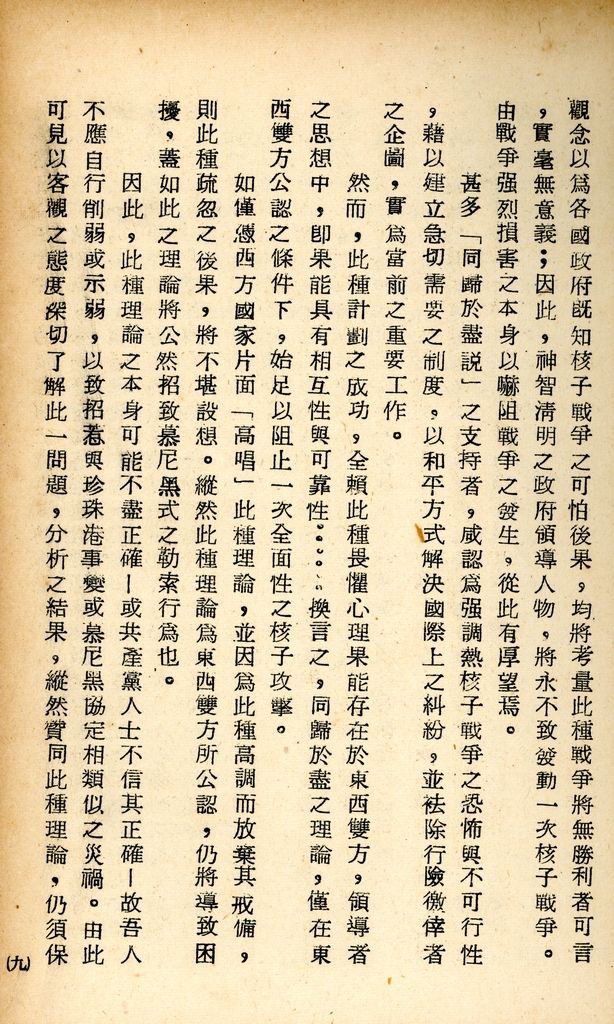 觀念以爲各國政府旣知核子戰爭之可怕後果，均將考量此種戰爭將無勝利者可言
，實毫無意義；因此，神智淸明之政府領導人物，將永不致發動一次核子戰爭。
由戰爭强烈損害之本身以嚇阻戰爭之發生，從此有厚望焉。
甚多「同歸於盡説」之支持者，咸認爲强調熱核子戰爭之恐怖與不可行性
，藉以建立急切需要之制度，以和平方式解決國際上之糾紛，並袪除行險徼倖者
之企圖，實爲當前之重要工作。
然而，此種計劃之成功，全賴此種畏懼心理果能存在於東西雙方，領導者
之思想中，卽果能具有相互性與可靠性。。。。換言之，同歸於盡之理論，僅在東
西雙方公認之條件下，始足以阻止一次全面性之核子攻擊。
如僅憑西方國家片面「高唱」此種理論，並因爲此種高調而放棄其戒備，
則此種疏忽之後果，將不堪設想。縱然此種理論爲東西雙方所公認，仍將導致困
擾，蓋如此之理論將公然招致慕尼黑式之勒索行爲也。
因此，此種理論之本身可能不盡正確—或共產黨人士不信其正確—故吾人
不應自行削弱或示弱，以致招惹與珍珠港事變或慕尼黑協定相類似之災禍。由此
可見以客觀之態度深切了解此一問題，分析之結果，縱然贊同此種理論，仍須保
(九)